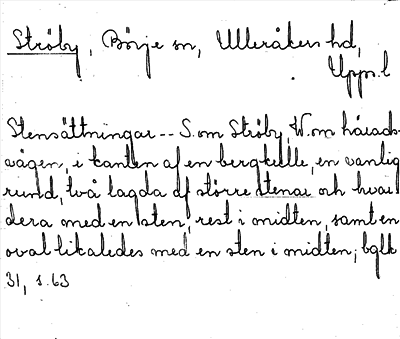 Ströby, Börje sn, Ulleråkers hd,
Upps. l
Stensättningar -- S. om Ströby, W. om härads-
vägen, i kanten af en bergkulle, en vanlig
rund, två lagda af större stenar och hvar-
dera med en sten, rest i midten, samt en
oval likaledes med en sten i midten; bglk
31, s. 63